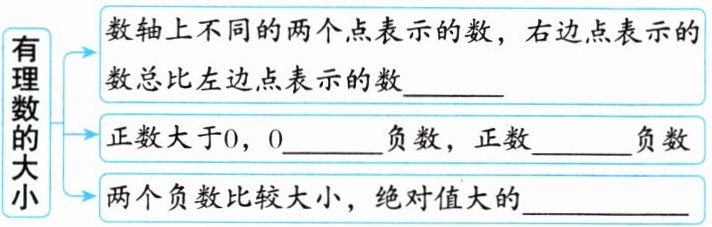 有理数的大小
数轴上不同的两个点表示的数，右边点表示的
数总比左边点表示的数________
正数大于0，0________负数，正数________负数
两个负数比较大小，绝对值大的____________